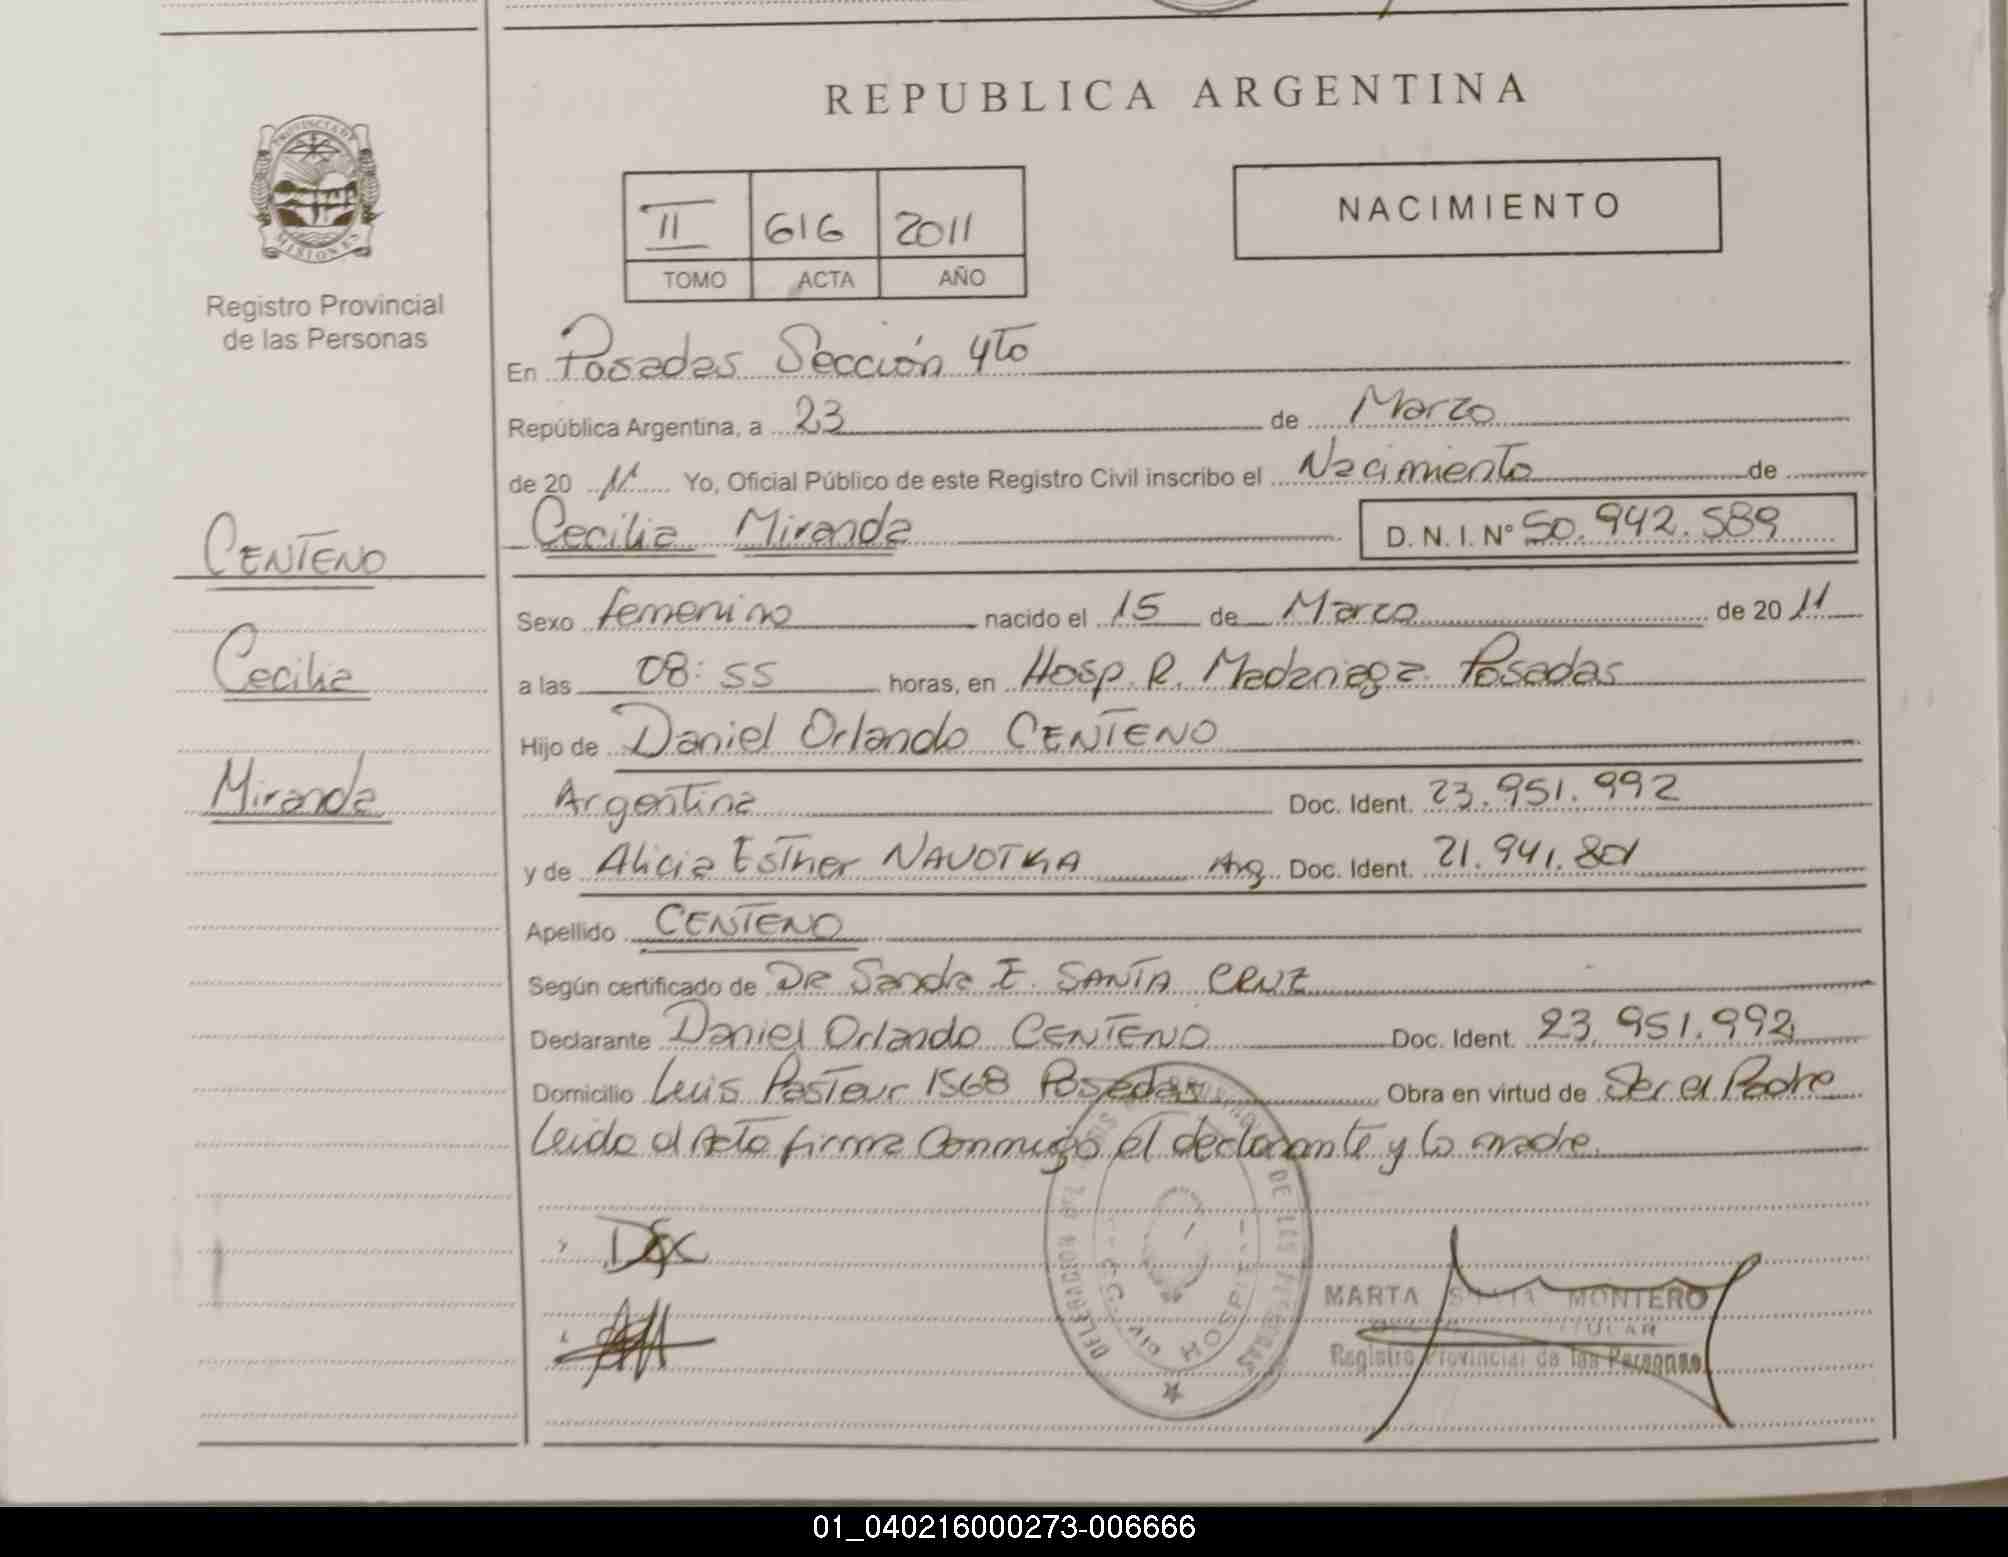 REPUBLICA ARGENTINA
PROVINCIA DE
MISIONES
Registro Provincial
de las Personas
II 616 2011
TOMO ACTA AÑO
NACIMIENTO
En Posadas Sección 4to
República Argentina, a 23 de Marzo
de 20 11 Yo, Oficial Público de este Registro Civil inscribo el Nacimiento de
Cecilia Miranda D. N. I. Nº 50.942.589
CENTENO
Cecilia
Miranda
Sexo femenino nacido el 15 de Marzo de 20 11
a las 08:55 horas, en Hosp. R. Madariaga. Posadas
Hijo de Daniel Orlando CENTENO
Argentina Doc. Ident. 23.951.992
y de Alicia Esther NAVOTKA Arg. Doc. Ident. 21.941.801
Apellido CENTENO
Según certificado de DR Sandra E. SANTA CRUZ
Declarante Daniel Orlando CENTENO Doc. Ident. 23.951.992
Domicilio Luis Pasteur 1568 Posadas Obra en virtud de Ser el Padre
Leido el Acto firma Conmigo el declarante y la madre.
DE LAS PERSONAS
DELEGACION
HOSPITAL
MARTA MONTERO
TITULAR
Registro Provincial de las Personas
01_040216000273-006666